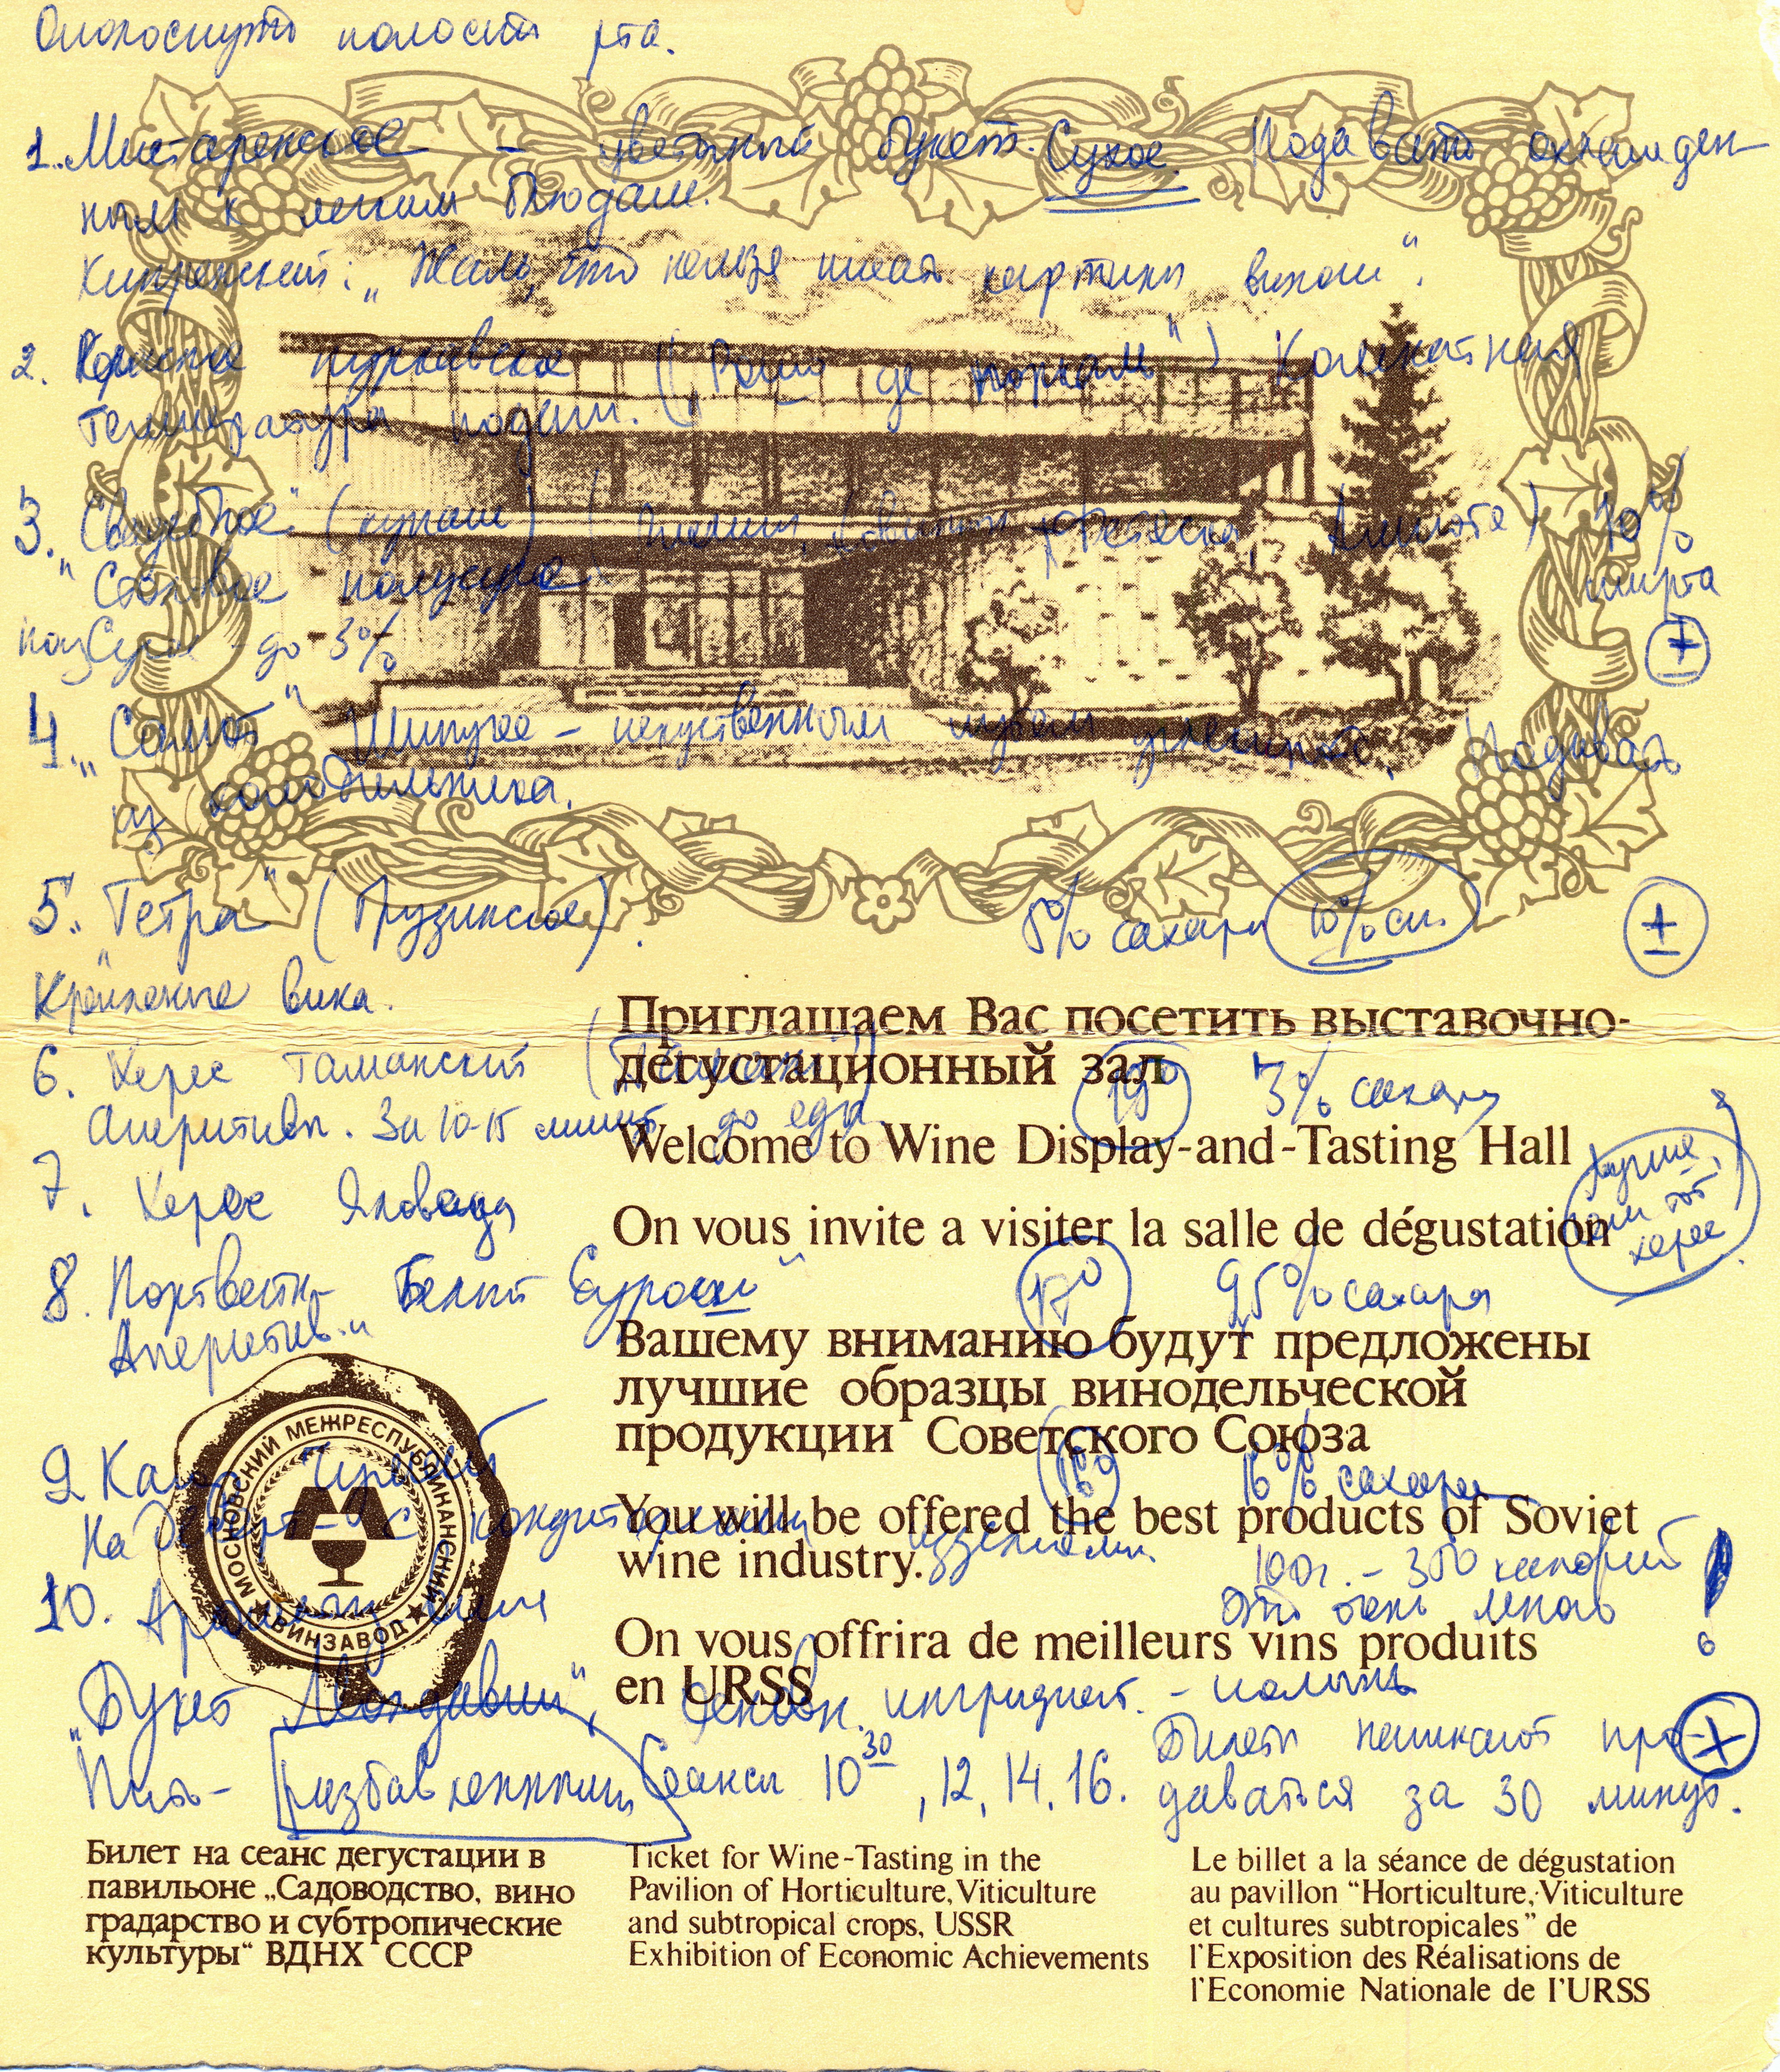 Ополоснуть полость рта.
1. – цветочный букет. Сухое. Подавать охлажден-
ным к легким блюдам.
Кипренский: „Жаль, что нельзя писать картины вином“.
2. пуркарское („ де “) Комнатная
температура подачи.
3. „Свадебное“ (купаж) ( , Фетяска, Алиготе) 10%
„Столовое полусухое спирта
до 3% ±
4. „Салют“ Шипучее – искусственным путем . Подавать
из холодильника.
5. „Тетра“ (Грузинское). 8% сахара 10% сп. ±
Крепленые вина.
Приглашаем Вас посетить выставочно-
дегустационный зал
6. Херес таманский ( ) 19° 3% сахару
Аперитивы. За 10-15 минут до еды
Welcome to Wine Display-and-Tasting Hall
лучше,
чем тот
херес
7. Херес
On vous invite a visiter la salle de dégustation
8. Портвейн – Белый 17° 95% сахара
Аперитив.
Вашему вниманию будут предложены
лучшие образцы винодельческой
продукции Советского Союза
9. 16° 16% сахара
На десерт – с кондитерскими изделиями
You will be offered the best products of Soviet
wine industry.
100г. – 350 калорий
Это очень много !
МОСКОВСКИЙ МЕЖРЕСПУБЛИКАНСКИЙ
ВИНЗАВОД
10.
On vous offrira de meilleurs vins produits
en URSS
„Букет Молдавии“, основн. ингридиент. – полынь
Пить – разбавленным Сеансы 10 30, 12, 14, 16. Билеты начинают про- +
даваться за 30 минут.
Билет на сеанс дегустации в
павильоне „Садоводство, вино
градарство и субтропические
культуры“ ВДНХ СССР
Ticket for Wine-Tasting in the
Pavilion of Horticulture, Viticulture
and subtropical crops, USSR
Exhibition of Economic Achievements
Le billet a la séance de dégustation
au pavillon “Horticulture, Viticulture
et cultures subtropicales” de
l'Exposition des Réalisations de
l'Economie Nationale de l'URSS